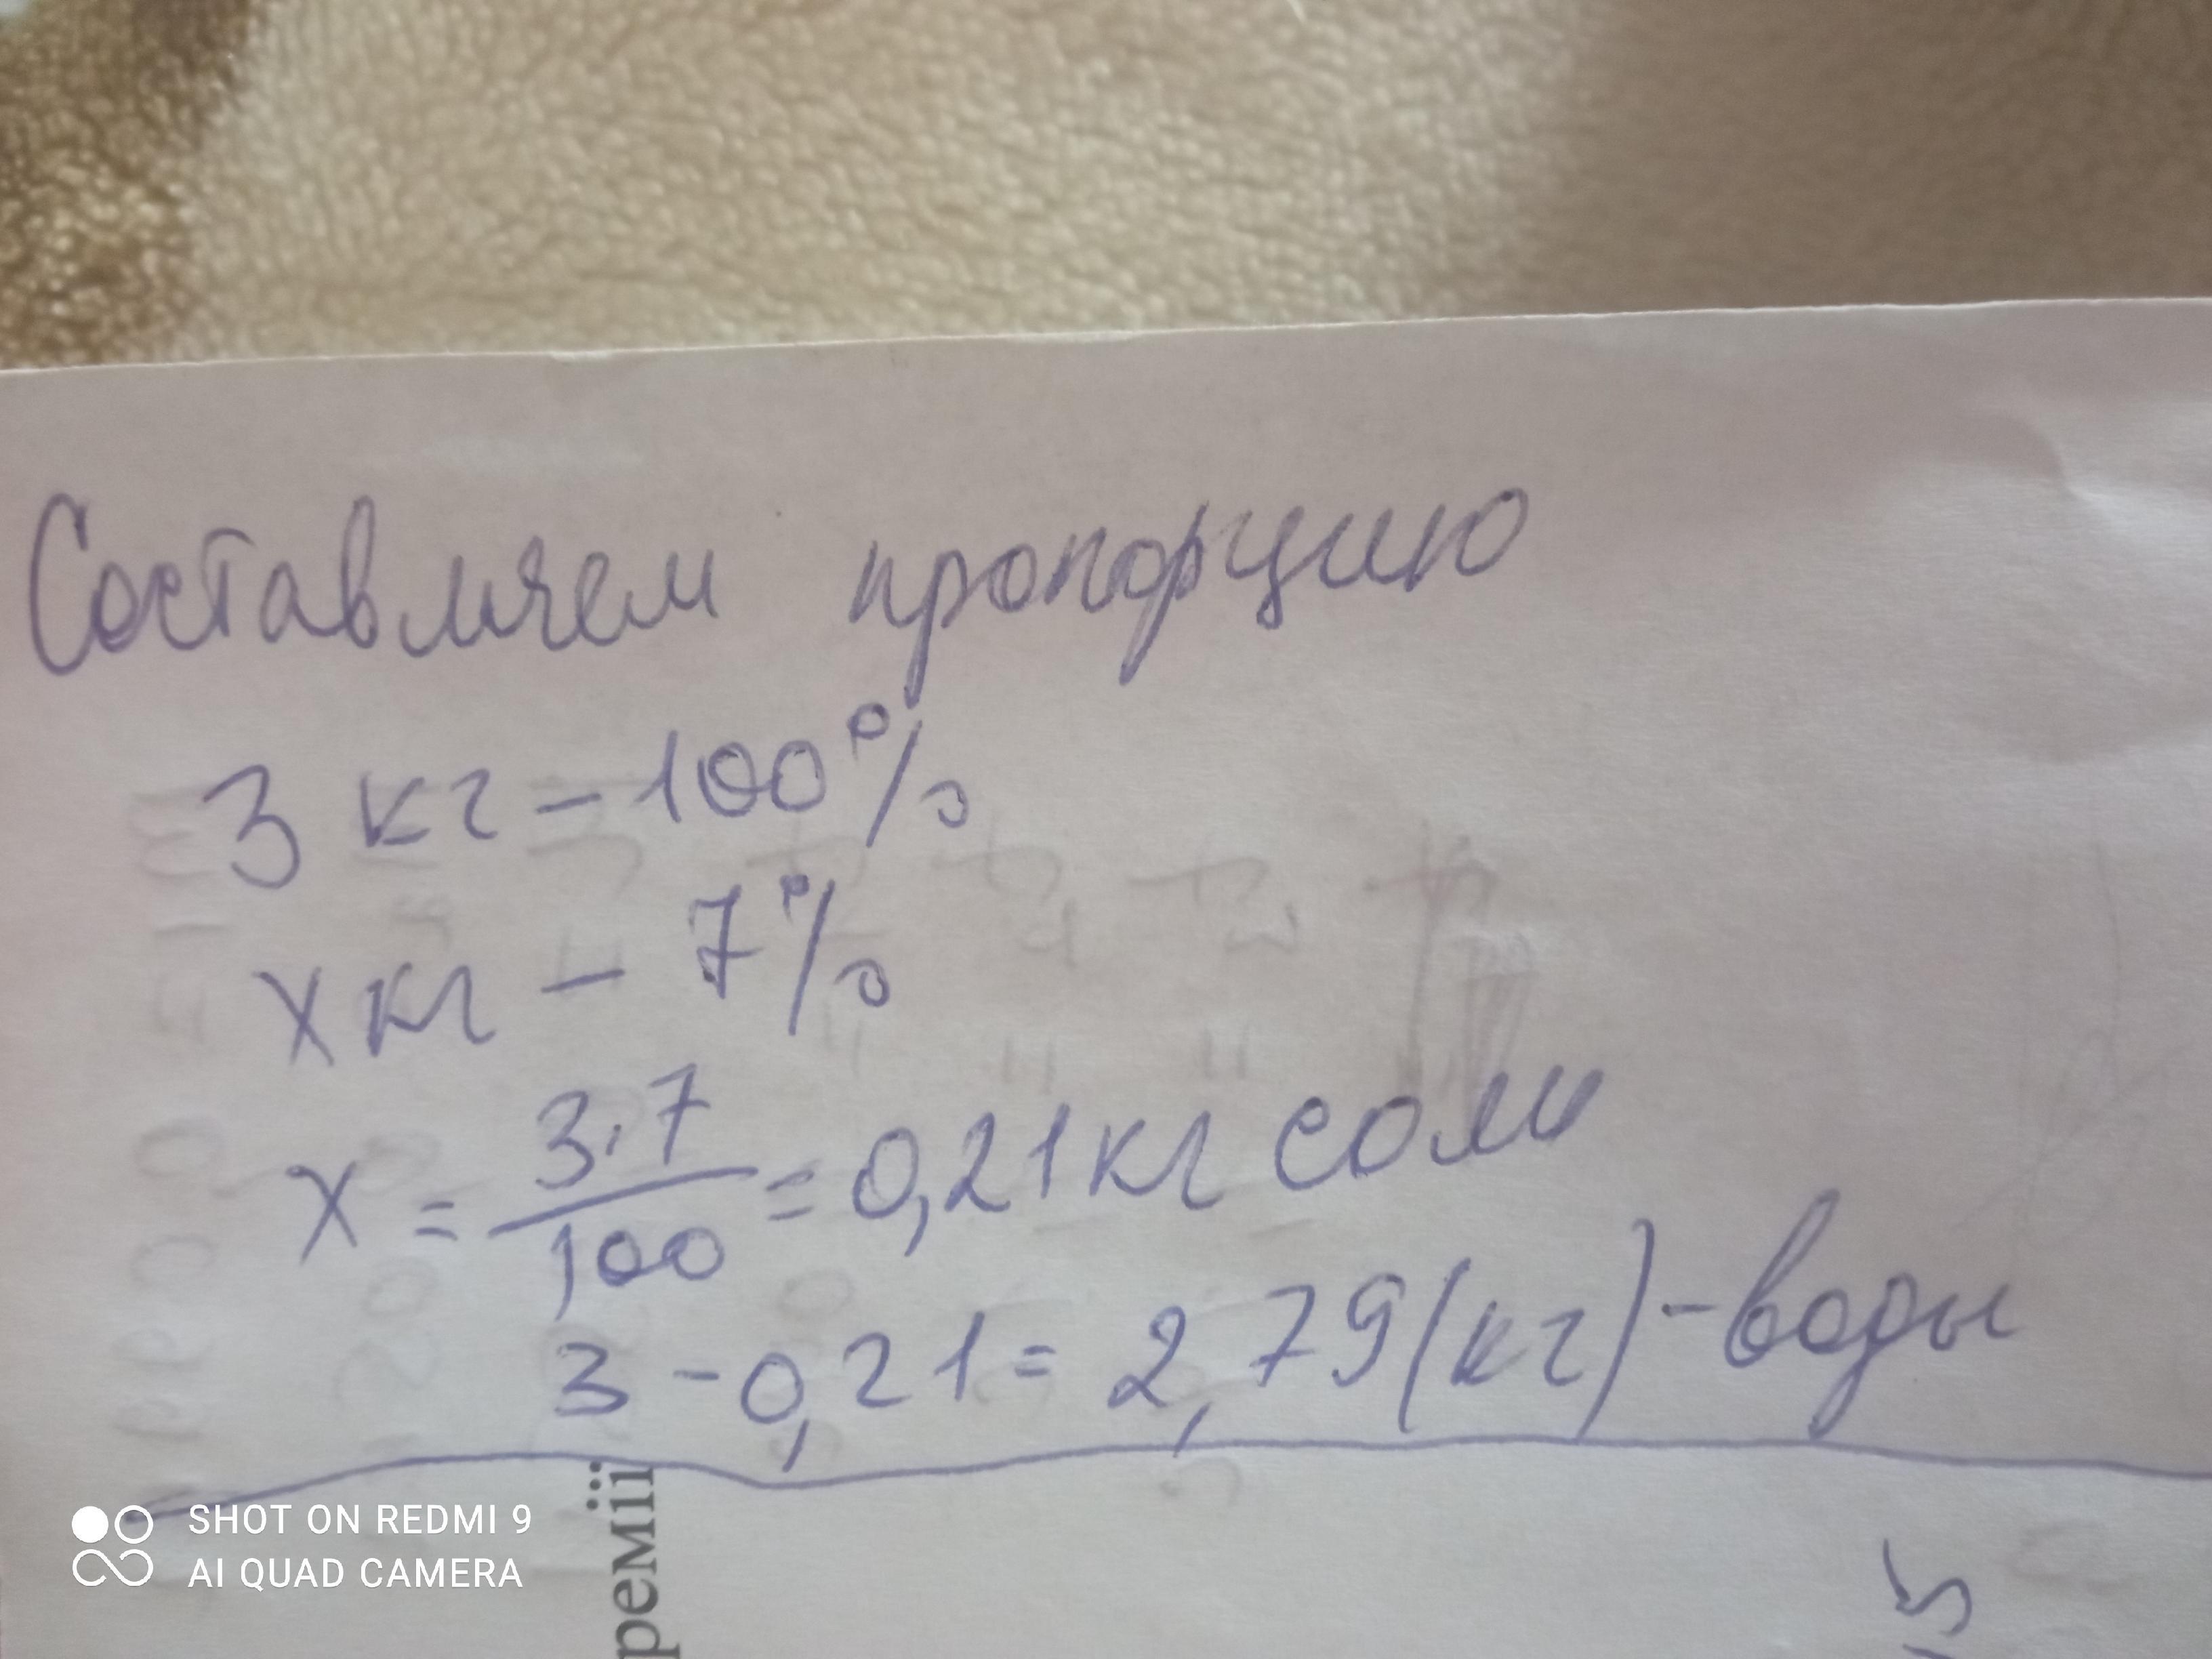 Составляем пропорцию
3 кг – 100%
х кг – 7%
х = 3·7/100 = 0,21 кг соли
3 - 0,21 = 2,79 (кг) – воды
ремії
SHOT ON REDMI 9
AI QUAD CAMERA